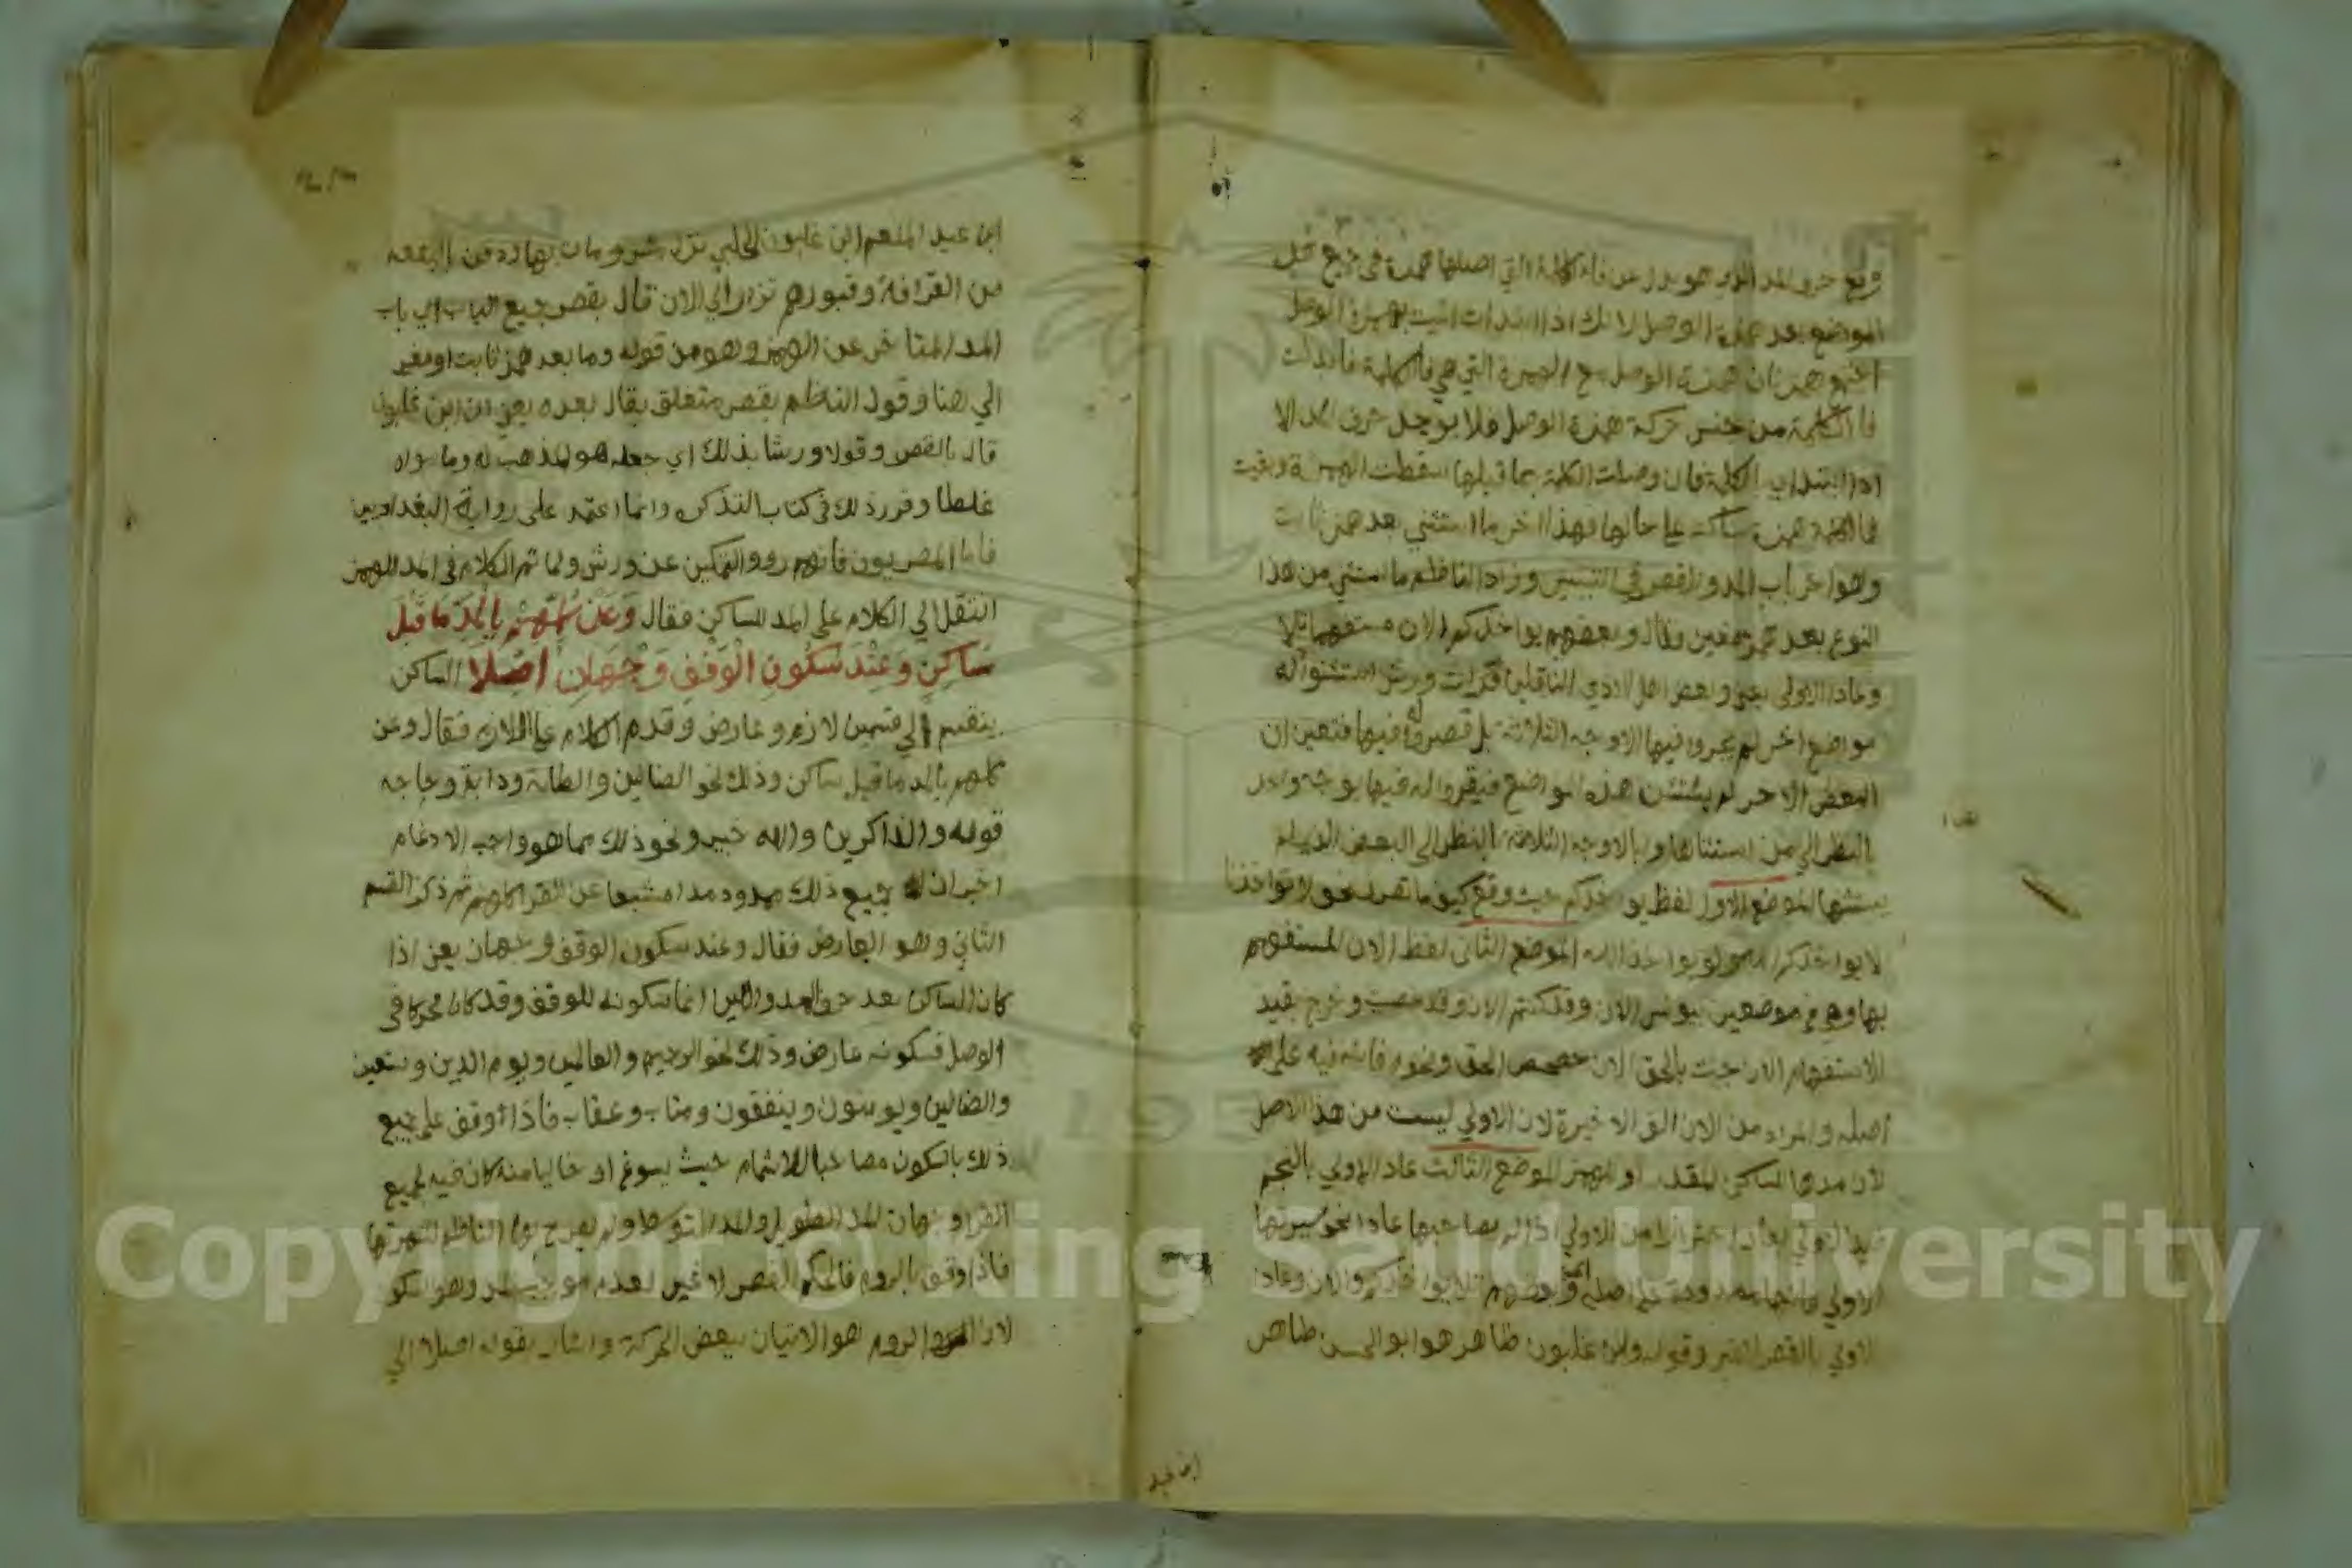 وقع حرف المد الذي هو بدل عن فاء الكلمة التي اصلها همزة في جميع قبل
المواضع بعد همزة الوصل لانك اذا ابتدات اتيت بهمزة الوصل
اجتمع همزتان همزة الوصل مع الهمزة التي هي فاء الكلمة فابدلت
فا الكلمة من جنس حركة همزة الوصل فلا يوجد حرف المد الا
اذا ابتدات بالكلمة فان وصلت الكلمة بما قبلها سقطت الهمزة وبقيت
فا الكلمة همزة ساكنة على حالها فهذا اخر ما استثني بعد همز ثابت
وهو اخر باب المد والقصر في التيسير وزاد الناظم ما استثني من هذا
النوع بعد همز مغير وقال وبعضهم يواخذكم الان مستفهما تلا
وعادا الاولى يعني وبعض اهل الادي الناقلين قراءت ورش استثنوا له
مواضع اخر لم يجروا فيها الاوجه الثلاثة بل قصروا له فيها فتعين ان
البعض الاخر لم يستثن هذه المواضع فيقروا له فيها بوجه واحد
بالنظر الي من استثناها وبالاوجه الثلاثة بالنظر الى البعض الذي لم
يستثنها الموضع الاول لفظ يواخذكم حيث وقع كيفما تصرف نحو لا تواخذنا
لا يواخذكم الله ولو يواخذ الله الموضع الثاني لفظ الان المستفهم
بها وهو في موضعين بيونس الان وقد كنتم الان وقد عصيت وخرج بقيد
الاستفهام الان جئت بالحق الان حصحص الحق ونحوه فانه فيه على
اصله والمراد من الان الالف الاخيرة لان الاولي ليست من هذا الاصل
لان مدها للساكن المقدر او للهمز الموضع الثالث عادا الاولي بالنجم
قيد الاولي بعادا احترازا من الاولي اذا لم يصاحبها عادا نحو سيرتها
الاولي فانها ممدودة على اصله وبعضهم تلا يواخذكم والان وعادا
الاولي بالقصر وقوله وابن غلبون طاهر هو ابو الحسن طاهر
ابن عبد
ابن عبد المنعم ابن غلبون الحلبي نزل مصر ومات بها ودفن بالبقعه
من القرافة وقبورهم تزار الي الان قال بقصر جميع الباب اي باب
المد المتاخر عن الهمز وهو من قوله وما بعد همز ثابت او مغير
الي هنا وقول الناظم بقصر متعلق بقال بعده يعني ان ابن غلبون
قال بالقصر وقولا ورشا بذلك اي جعله هو المذهب له وما سواه
غلطا وقرر ذلك في كتاب التذكره وانما اعتمد على رواية البغداديين
فاما المصريون فانهم رووا التمكين عن ورش ولما تم الكلام في المد للهمز
انتقل الي الكلام على المد للساكن فقال وَعَنْ كُلِّهِمْ بِالْمَدِّ مَا قَبْلَ
سَاكِنٍ وَعِنْدَ سُكُونِ الْوَقْفِ وَجْهَانِ اُصِّلَا الساكن
ينقسم الي قسمين لازم وعارض وقدم الكلام على اللازم فقال وعن
كلهم بالمد ما قبل ساكن وذلك نحو الضالين والطامة ودابة وحاجه
قومه والذاكرين والله خبير ونحو ذلك مما هو واجب الادغام
اخبر ان جميع ذلك ممدود مدا مشبعا عن القرا كلهم ثم ذكر القسم
الثاني وهو العارض فقال وعند سكون الوقف وجهان يعني اذا
كان الساكن بعد حرف المد واللين انما سكونه للوقف وقد كان محركا في
الوصل فسكونه عارض وذلك نحو الرحيم والعالمين ويوم الدين ونستعين
والضالين ويومنون وينفقون ومتاب وعقاب فاذا وقف على جميع
ذلك بالسكون مصاحبا للاشمام حيث يسوغ او خاليا منه كان فيه لجميع
القرا وجهان المد الطويل والمد المتوسط ولم يصرح بهما الناظم لشهرتها
فاذا وقف بالروم فالحكم القصر لا غير لعدم موجب المد وهو السكو
لان الروم هو الاتيان ببعض الحركة واشار بقوله اصلا الي